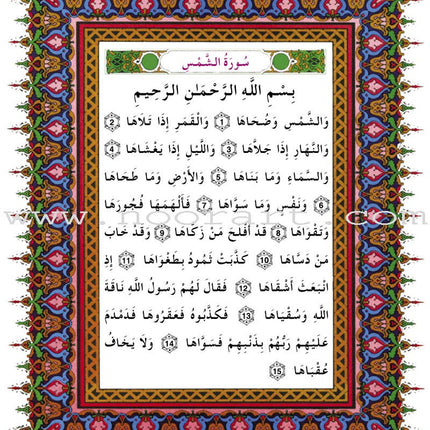 سُورَةُ الشَّمْسِ
بِسْمِ اللَّهِ الرَّحْمَـٰنِ الرَّحِيمِ
وَالشَّمْسِ وَضُحَاهَا ﴿1﴾ وَالْقَمَرِ إِذَا تَلَاهَا ﴿2﴾
وَالنَّهَارِ إِذَا جَلَّاهَا ﴿3﴾ وَاللَّيْلِ إِذَا يَغْشَاهَا ﴿4﴾
وَالسَّمَاءِ وَمَا بَنَاهَا ﴿5﴾ وَالْأَرْضِ وَمَا طَحَاهَا
﴿6﴾ وَنَفْسٍ وَمَا سَوَّاهَا ﴿7﴾ فَأَلْهَمَهَا فُجُورَهَا
www.noorart.com
وَتَقْوَاهَا ﴿8﴾ قَدْ أَفْلَحَ مَنْ زَكَّاهَا ﴿9﴾ وَقَدْ خَابَ
مَنْ دَسَّاهَا ﴿10﴾ كَذَّبَتْ ثَمُودُ بِطَغْوَاهَا ﴿11﴾ إِذِ
انْبَعَثَ أَشْقَاهَا ﴿12﴾ فَقَالَ لَهُمْ رَسُولُ اللَّهِ نَاقَةَ
اللَّهِ وَسُقْيَاهَا ﴿13﴾ فَكَذَّبُوهُ فَعَقَرُوهَا فَدَمْدَمَ
عَلَيْهِمْ رَبُّهُمْ بِذَنْبِهِمْ فَسَوَّاهَا ﴿14﴾ وَلَا يَخَافُ
عُقْبَاهَا ﴿15﴾